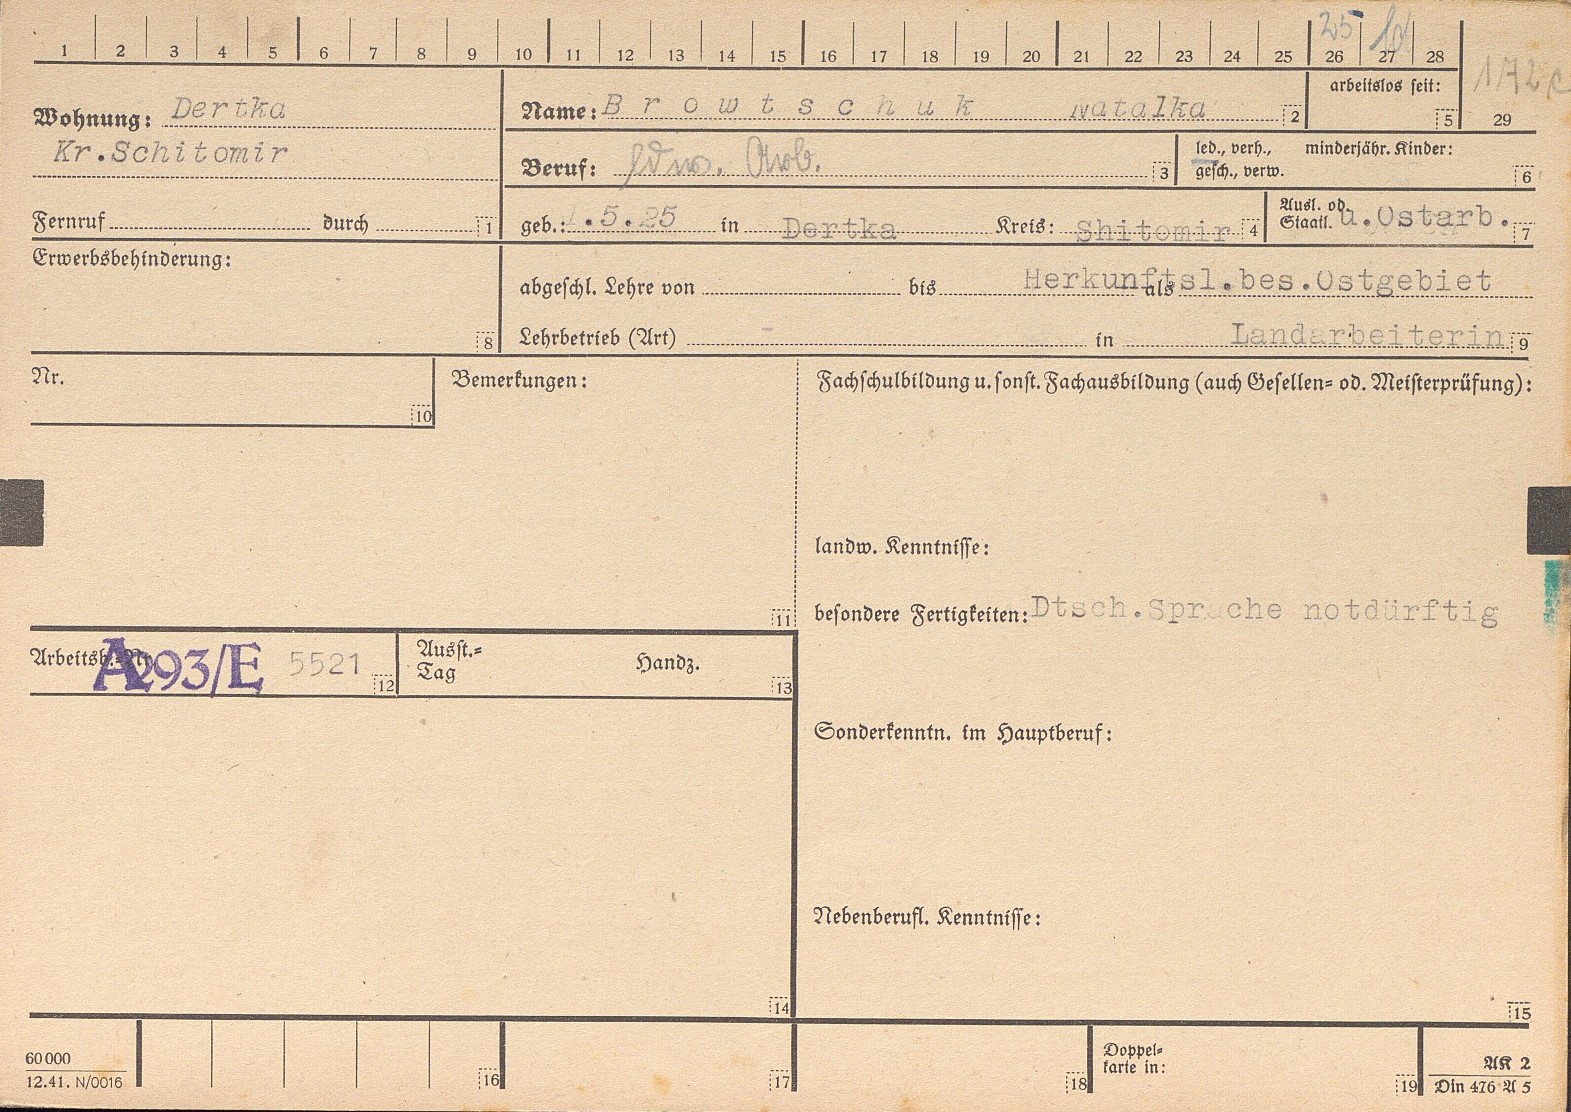 1 2 3 4 5 6 7 8 9 10 11 12 13 14 15 16 17 18 19 20 21 22 23 24 25 26 27 28
25
172c
29
Wohnung: Dertka
Kr.Schitomir
Name: Browtschuk Natalka 2
arbeitslos seit: 5
Beruf: Arb. 3
led., verh., minderjähr. Kinder:
gesch., verw. 6
Fernruf durch 1
geb.: 1.5.25 in Dertka Kreis: Shitomir 4
Ausl. od.
Staatl. u.Ostarb. 7
Erwerbsbehinderung: 8
abgeschl. Lehre von bis als Herkunftsl.bes.Ostgebiet
Lehrbetrieb (Art) in Landarbeiterin 9
Nr. 10
Bemerkungen: 11
Fachschulbildung u. sonst. Fachausbildung (auch Gesellen- od. Meisterprüfung):
landw. Kenntnisse:
besondere Fertigkeiten: Dtsch.Sprache notdürftig
Arbeitsb.-Nr. A293/E 5521 12
Ausst.-
Tag Handz. 13
Sonderkenntn. im Hauptberuf:
Nebenberufl. Kenntnisse:
14
15
60000
12.41. N/0016
16
17
18
Doppel-
karte in: 19
AK 2
Din 476 A 5